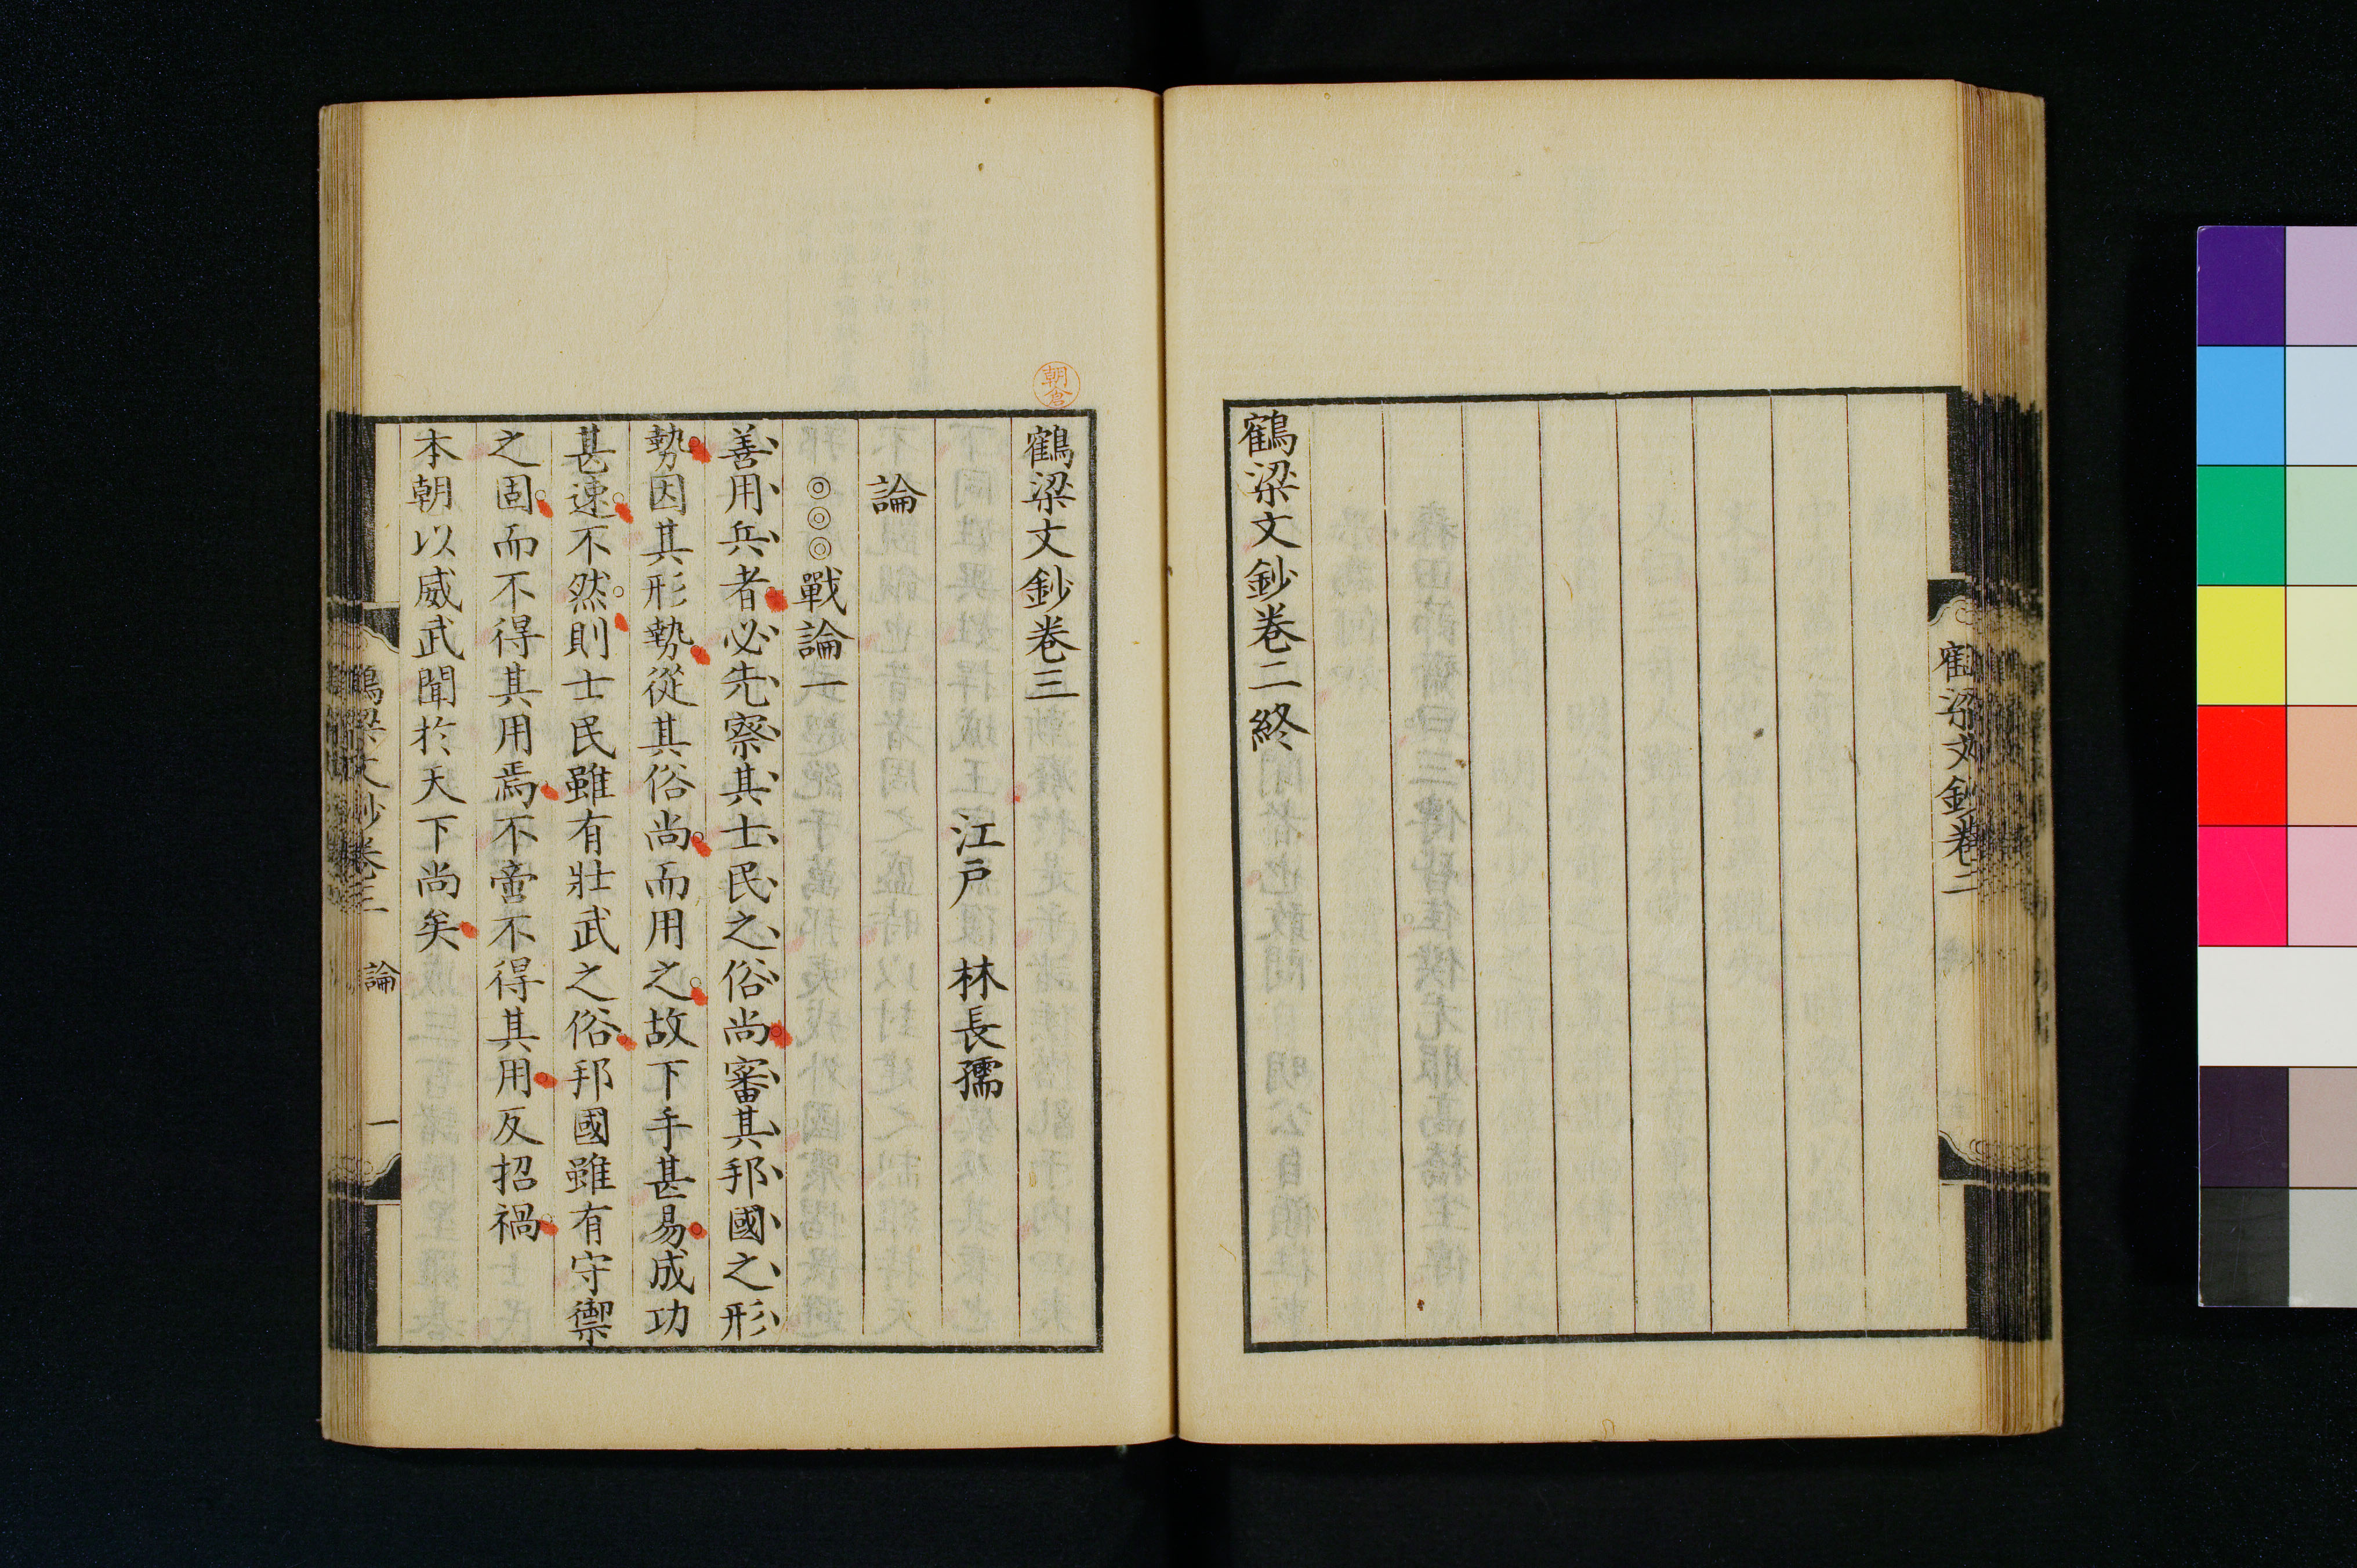 鶴梁文鈔卷二
鶴梁文鈔卷二終
朝倉
鶴梁文鈔卷三
江戸 林長孺
論
◎◎◎戰論一
善用兵者必先察其士民之俗尚審其邦國之形
勢因其形勢從其俗尚而用之故下手甚易成功
甚速不然則士民雖有壯武之俗邦國雖有守禦
之固而不得其用焉不啻不得其用反招禍
本朝以威武聞於天下尚矣
鶴梁文鈔卷三 論 一